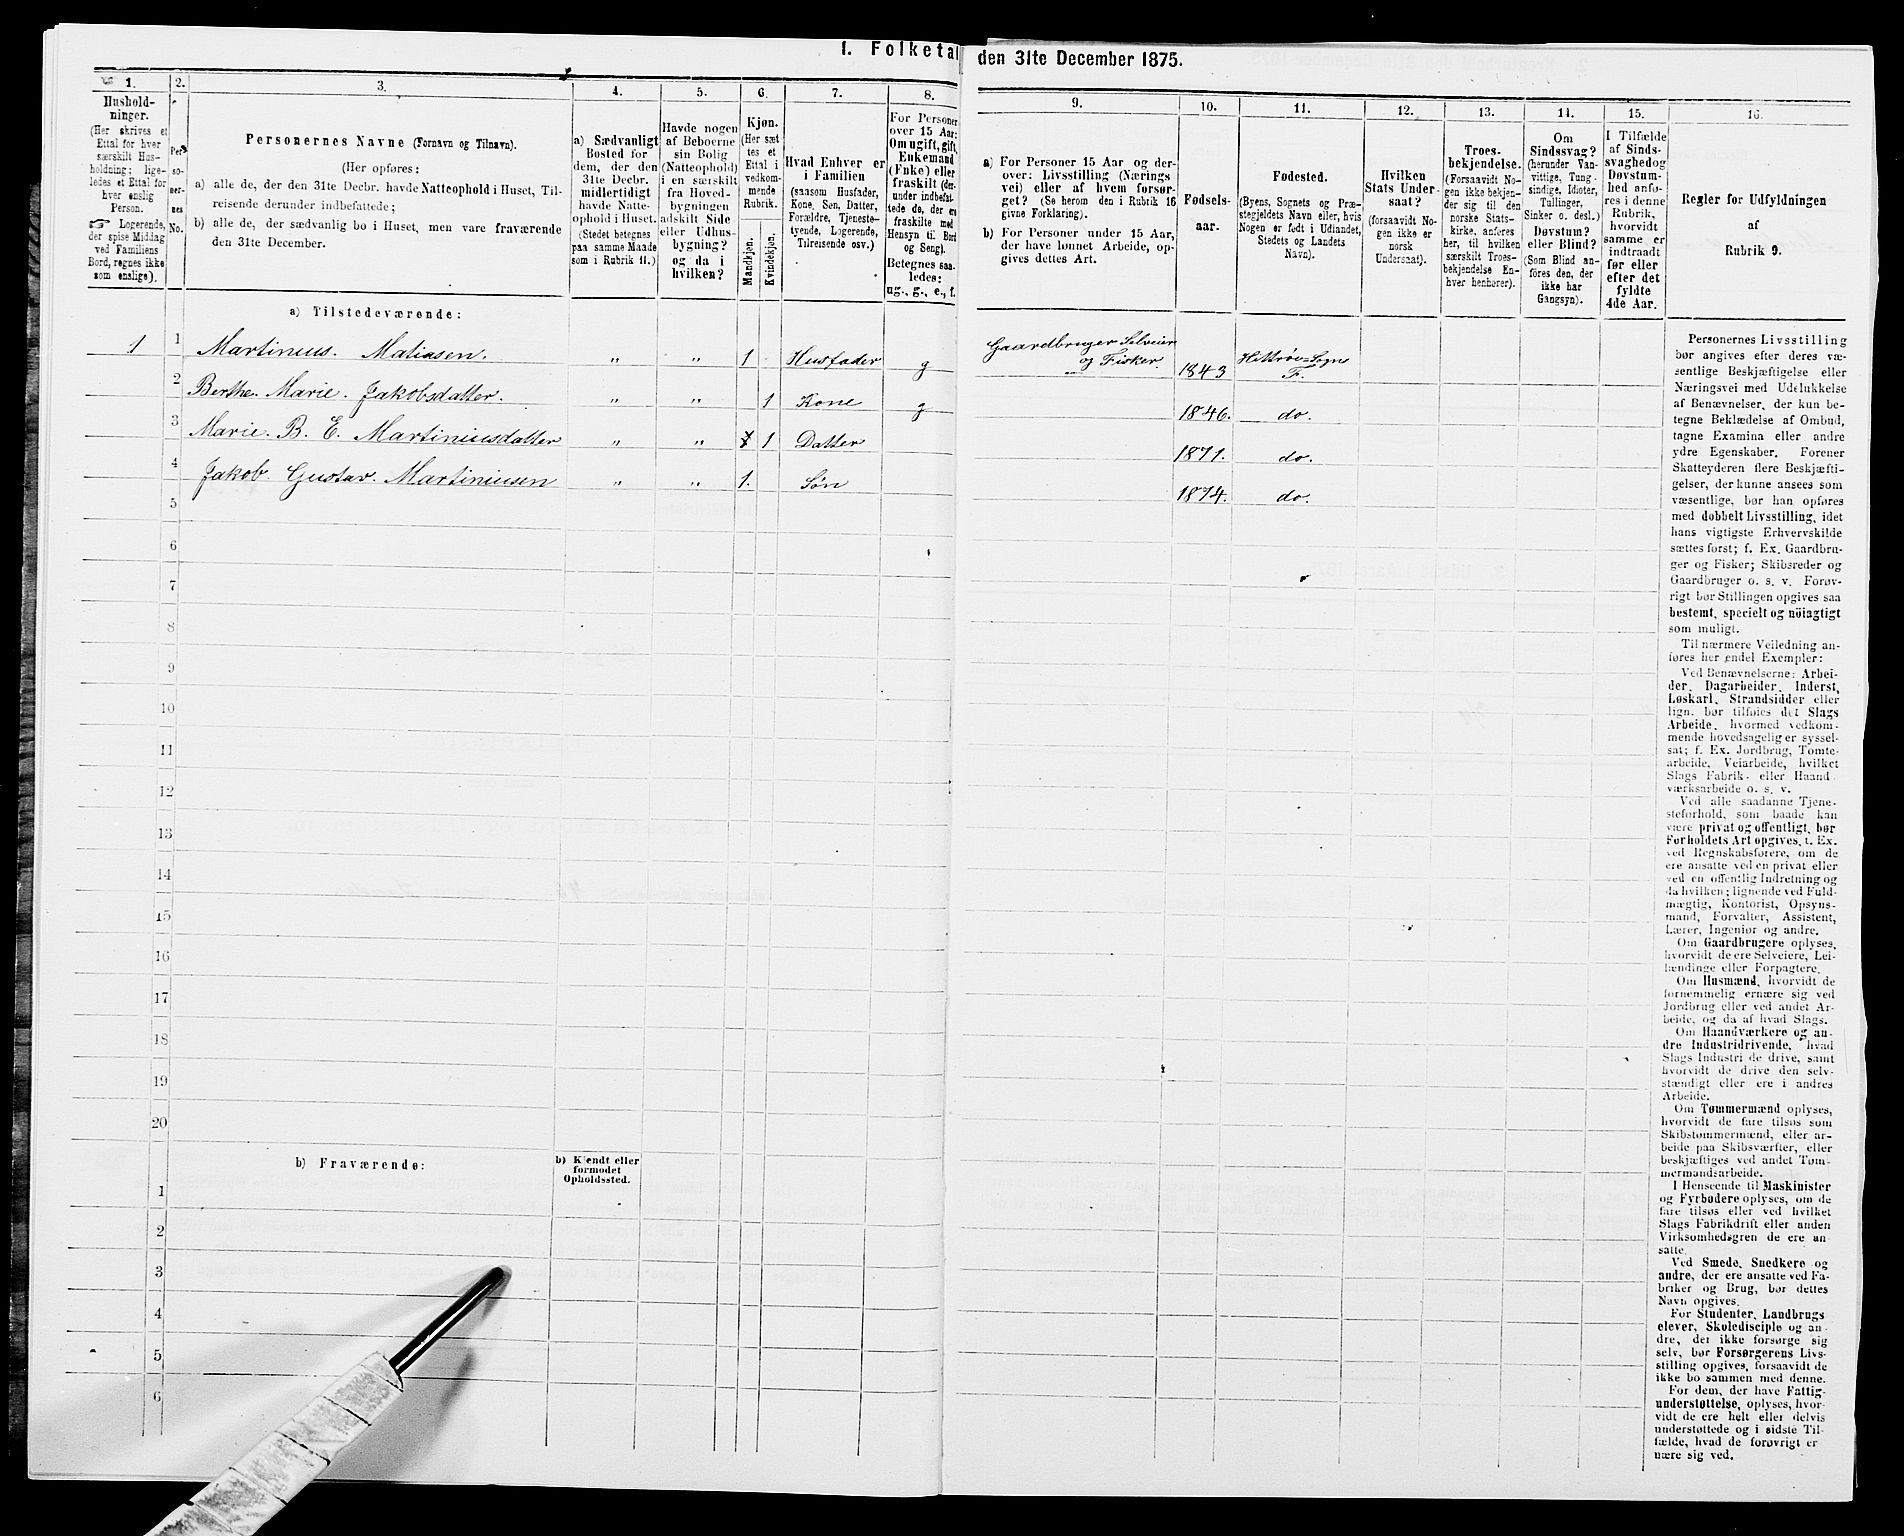 1. Folketal
den 31te December 1875.
1.
2.
3.
4.
5.
6.
7.
8.
9.
10.
11.
12.
13.
14.
15.
16.
Hushold-
ninger.
(Her skrives et
Ettal for hver
særskilt Hus-
holdning; lige-
ledes et Ettal for
hver enslig
Person.
☞ Logerende,
der spise Middag
ved Familiens
Bord, regnes ikke
som enslige).
Per-
so-
ner-
nes
No.
Personernes Navne (Fornavn og Tilnavn).
(Her opføres:
a) alle de, der den 31te Decbr. havde Natteophold i Huset, Til-
reisende derunder indbefattede;
b) alle de, der sædvanlig bo i Huset, men vare fraværende
den 31te December.
a) Sædvanligt
Bosted for
dem, der den
31te Decbr.
midlertidigt
havde Natte-
ophold i Huset.
(Stedet betegnes
paa samme Maade
som i Rubrik 11.)
Havde nogen
af Beboerne
sin Bolig
(Natteophold)
i en særskilt
fra Hoved-
bygningen
adskilt Side
eller Udhus-
bygning?
og da i
hvilken?
Kjøn.
(Her sæt
tes et
Ettal i
vedkom-
mende
Rubrik.
Mandkjøn.
Kvindekjøn.
Hvad Enhver er
i Familien
(saasom Husfader,
Kone, Søn, Datter,
Forældre, Tjeneste-
tyende, Logerende,
Tilreisende osv.)
For Personer
over 15 Aar:
Om ugift, gift,
Enkemand
(Enke) eller
fraskilt (der-
under indbefat-
tede de, der ere
fraskilte med
Hensyn til Bord
og Seng).
Betegnes saa-
ledes:
ug., g., e., f.
a) For Personer 15 Aar og der-
over: Livsstilling (Nærings
vei) eller af hvem forsør-
get? (Se herom den i Rubrik 16
givne Forklaring).
b) For Personer under 15 Aar,
der have lønnet Arbeide, op-
gives dettes Art.
Fødsels-
aar.
Fødested.
(Byens, Sognets og Præ-
stegjeldets Navn eller, hvis
Nogen er født i Udlandet,
Stedets og Landets
Navn).
Hvilken
Stats Under-
saat?
(forsaavidt No-
gen ikke er
norsk
Undersaat).
Troes-
bekjendelse.
(Forsaavidt No-
gen ikke bekjen-
der sig til den
norske Stats-
kirke, anføres
her, til hvilken
særskilt Troes-
bekjendelse En-
hver henhører).
Om
Sindssvag?
(herunder Van-
vittige, Tung-
sindige, Idioter,
Tullinger,
Sinker o. desl.)
Døvstum?
eller Blind?
(Som Blind an-
føres den, der
ikke har
Gangsyn).
I Tilfælde
af Sinds-
svaghed og
Døvstum-
hed anfø-
res i denne
Rubrik,
hvorvidt
samme er
indtraadt
før eller
efter det
fyldte
4de Aar.
Regler for Udfyldningen
af
Rubrik 9.
a) Tilstedeværende:
1 1 Martinius. Matiasen. „ „ 1 Husfader g Gaardbruger Selveier
og Fisker. 1843 Hittrø=Sogn
F.
2 Berthe. Marie. Jakobsdatter. „ „ 1 Kone g 1846. do.
3 Marie. B. E. Martiniusdatter „ „ 1 Datter 1871. do.
4 Jakob Gustav. Martiniusen „ „ 1. Søn 1874. do.
5
6
7
8
9
10
11
12
13
14
15
16
17
18
19
20
b) Fraværende:
b) Kjendt eller
formodet
Opholdssted.
1
2
3
4
5
6
Personernes Livsstilling
bør angives efter deres væ-
sentlige Beskjæftigelse eller
Næringsvei med Udelukkelse
af Benævnelser, der kun be-
tegne Beklædelse af Ombud,
tagne Examina eller andre
ydre Egenskaber. Forener
Skatteyderen flere Beskjæfti-
gelser, der kunne ansees som
væsentlige, bør han opføres
med dobbelt Livsstilling, idet
hans vigtigste Erhvervskilde
sættes først; f. Ex. Gaardbru-
ger og Fisker; Skibsreder og
Gaardbruger o. s. v. Forøv-
rigt bør Stillingen opgives saa
bestemt, specielt og nöiagtigt
som muligt.
Til nærmere Veiledning an-
føres her endel Exempler:
Ved Benævnelserne: Arbei-
der, Dagarbeider, Inderst,
Løskarl, Strandsidder eller
lign. bør tilføies det Slags
Arbeide, hvormed vedkom-
mende hovedsagelig er syssel-
sat; f. Ex. Jordbrug, Tomte-
arbeide, Veiarbeide, hvilket
Slags Fabrik- eller Haand
værksarbeide o. s. v.
Ved alle saadanne Tjene-
steforhold, som baade kan
være privat og offentligt, bør
Forholdets Art opgives, t. Ex.
ved Regnskabsførere, om de
ere ansatte ved en privat eller
ved en offentlig Indretning og
da hvilken; lignende ved Fuld-
mægtig, Kontorist, Opsyns-
mand, Forvalter, Assistent,
Lærer, Ingeniør og andre.
Om Gaardbrugere oplyses,
hvorvidt de ere Selveiere, Lei-
lændinge eller Forpagtere.
Om Husmænd, hvorvidt de
fornemmelig ernære sig ved
Jordbrug eller ved andet Ar-
beide, og da af hvad Slags.
Om Haandværkere og an-
dre Industridrivende, hvad
Slags Industri de drive, samt
hvorvidt de drive den selv-
stændigt eller ere i andres
Arbeide.
Om Tømmermænd oplyses,
hvorvidt de fare tilsøs som
Skibstømmermænd, eller ar-
beide paa Skibsværfter, eller
beskjæftiges ved andet Tøm-
mermandsarbeide.
I Henseende til Maskinister
og Fyrbødere oplyses, om de
fare tilsøs eller ved hvilket
Slags Fabrikdrift eller anden
Virksomhedsgren de ere an
satte.
Ved Smede, Snedkere og
andre, der ere ansatte ved Fa-
briker og Brug, bør dettes
Navn opgives.
For Studenter, Landbrugs
elever, Skoledisciple og an-
dre, der ikke forsørge sig
selv, bør Forsørgerens Livs-
stilling opgives, forsaavidt de
ikke bo sammen med denne.
For dem, der have Fattig-
understøttelse, oplyses, hvor-
vidt de ere helt eller delvis
understøttede og i sidste Til-
fælde, hvad de forøvrigt er
nære sig ved.